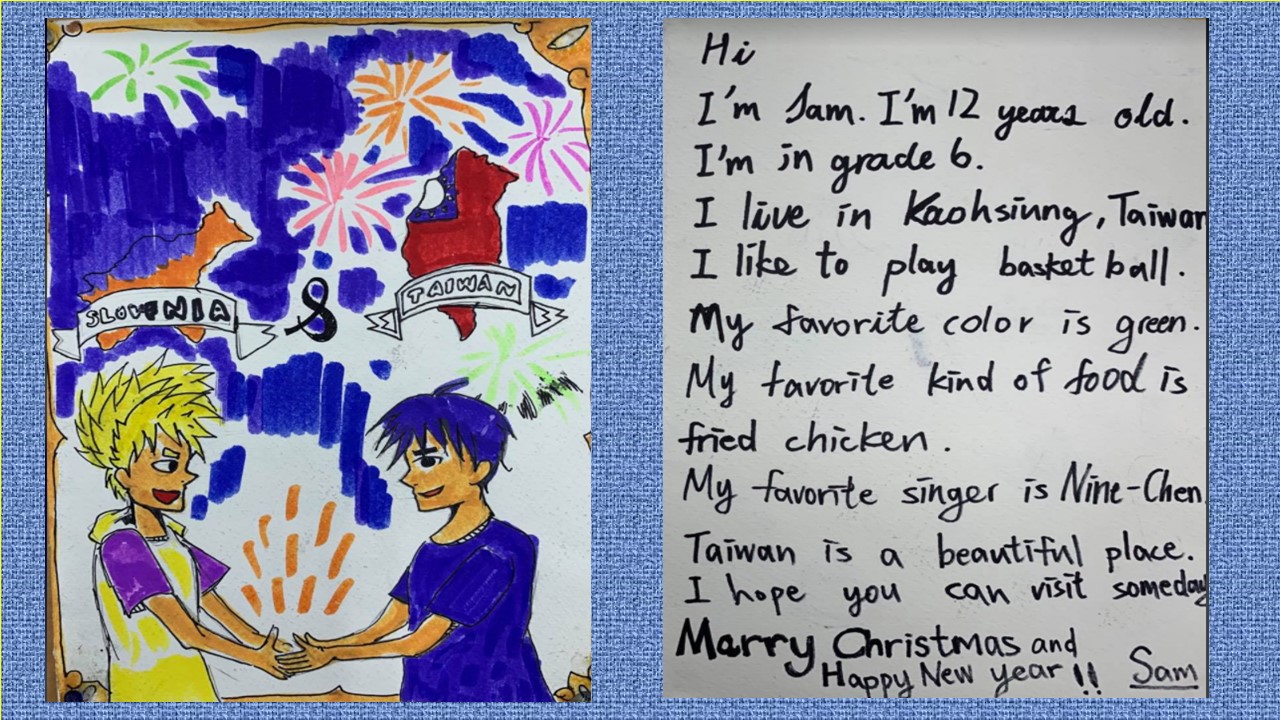 SLOVENIA
&
TAIWAN
Hi
I'm Sam. I'm 12 years old.
I'm in grade 6.
I live in Kaohsiung, Taiwan
I like to play basketball.
My favorite color is green.
My favorite kind of food is
fried chicken.
My favorite singer is Nine-Chen
Taiwan is a beautiful place.
I hope you can visit someday
Marry Christmas and
Happy New year !!
Sam